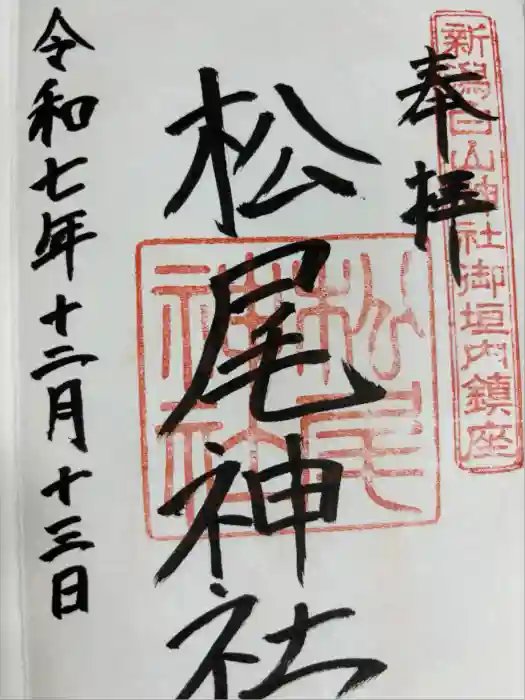 新潟白山神社御垣内鎮座
奉拝
松尾神社
松尾
神社
令和七年十二月十三日